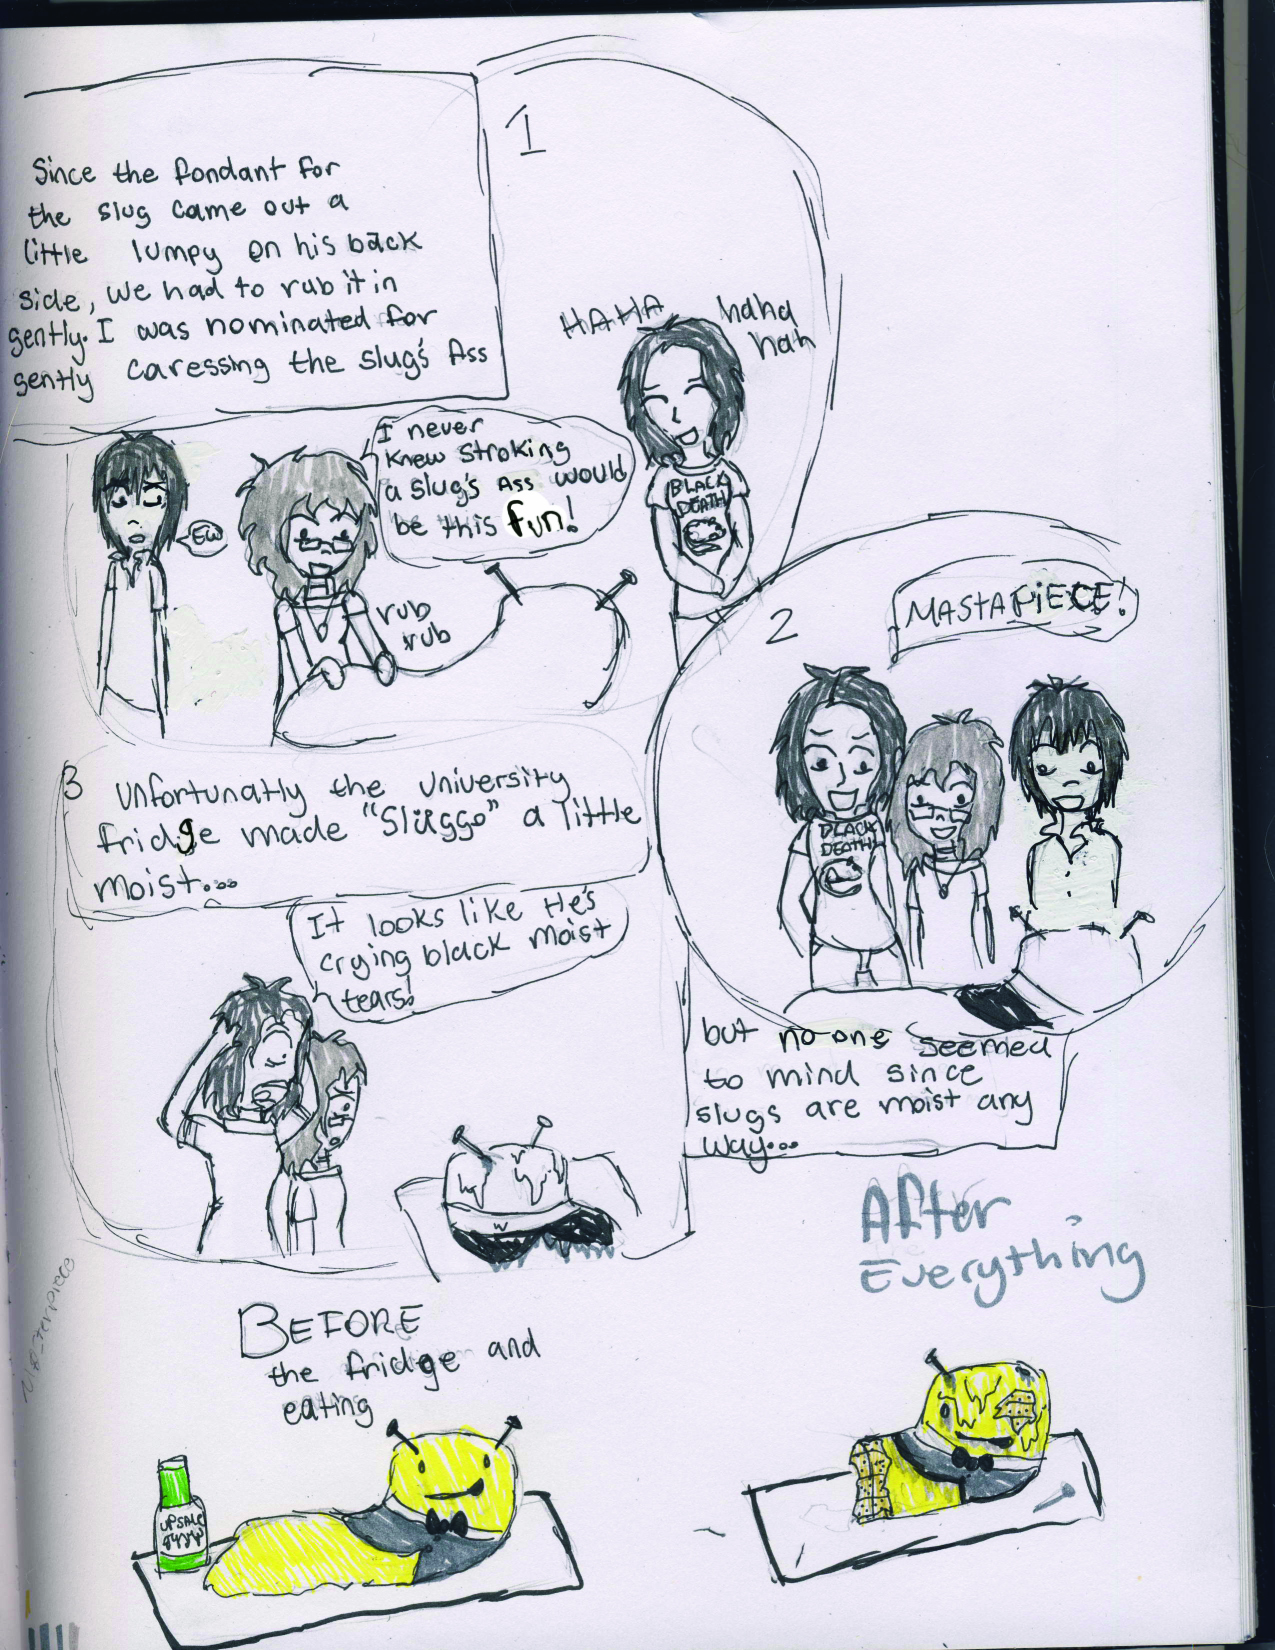 Since the fondant for
the slug came out a
little lumpy on his back
side, we had to rub it in
gently. I was nominated for
gently caressing the slug's Ass
1
HAHA
haha
hah
BLACK
DEATH
I never
knew stroking
a slug's Ass would
be this fun!
Ew
rub
rub
2
MASTAPiECE!
BLACK
DEATH
3 Unfortunatly the university
fridge made "Sluggo" a little
moist...
It looks like He's
crying black moist
tears!
W
but no one seemed
to mind since
slugs are moist any
way...
After
Everything
BEFORE
the fridge and
eating
UPSALE